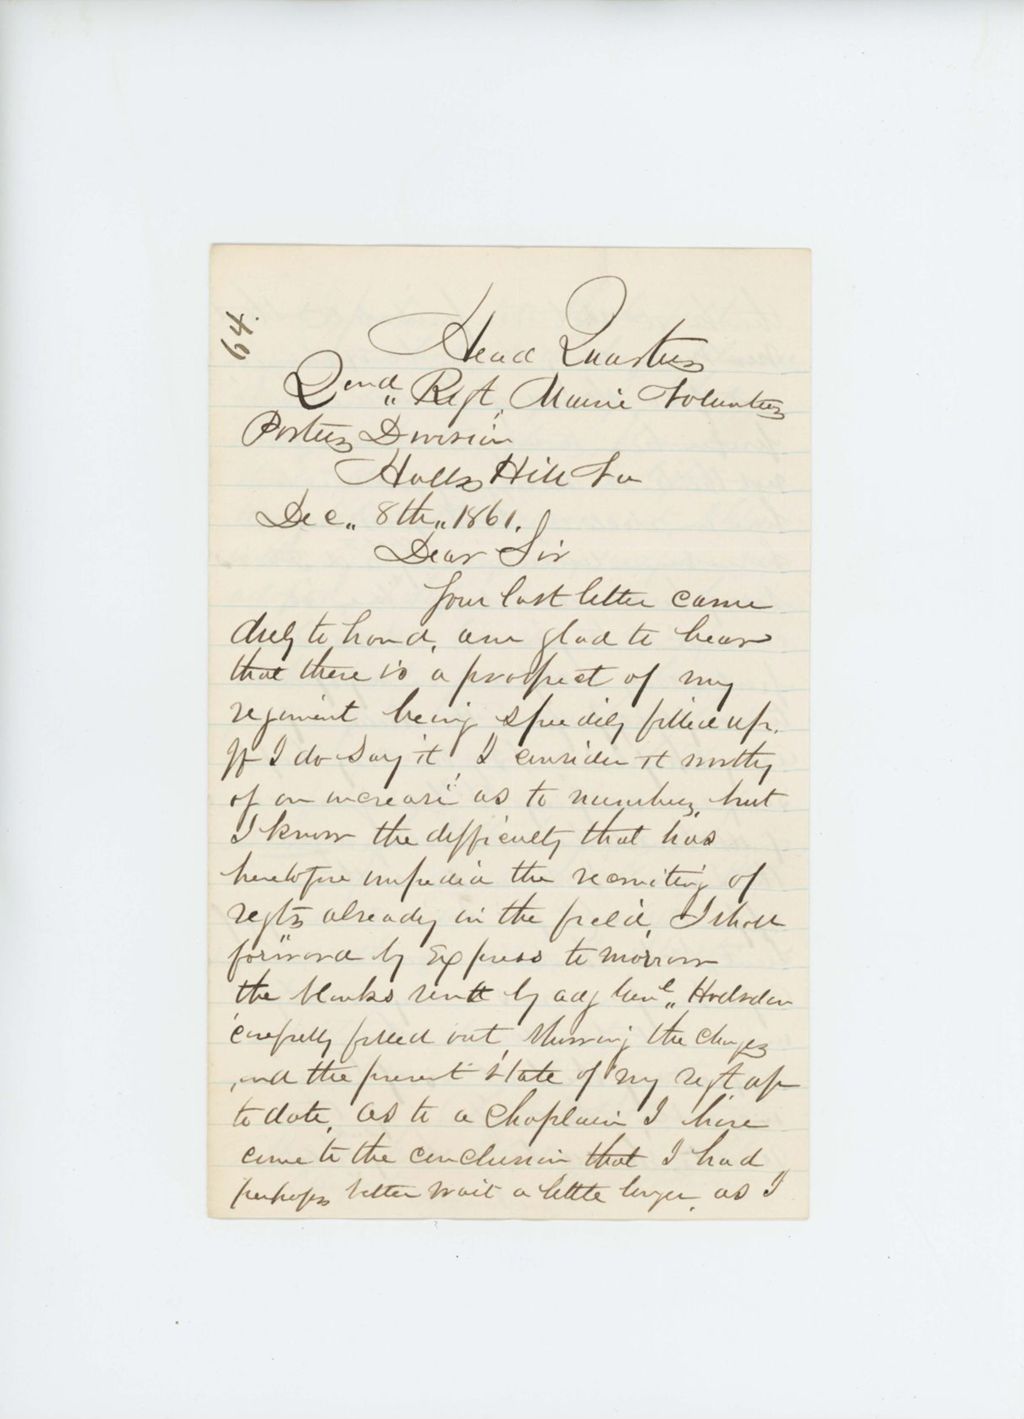 64.
Head Quarters
2ond,, Regt, Maine Volunteers
Porters Division
Halls Hill Va
Dec,, 8th,, 1861.
Dear Sir
Your last letter came
duly to hand, am glad to hear
that there is a prospect of my
regiment being speedily filled up.
If I do say it, I consider it worthy
of an increase as to numbers, but
I know the difficulty that has
heretofore impedid the recruiting of
regts already in the field, I shall
forward by Express to morrow
the blanks sent by adj Genl,, Hodsdon
carefully filled out, showing the changes
and the present state of my regt, up
to date, as to a Chaplain I have
come to the conclusion that I had
perhaps better wait a little longer, as I